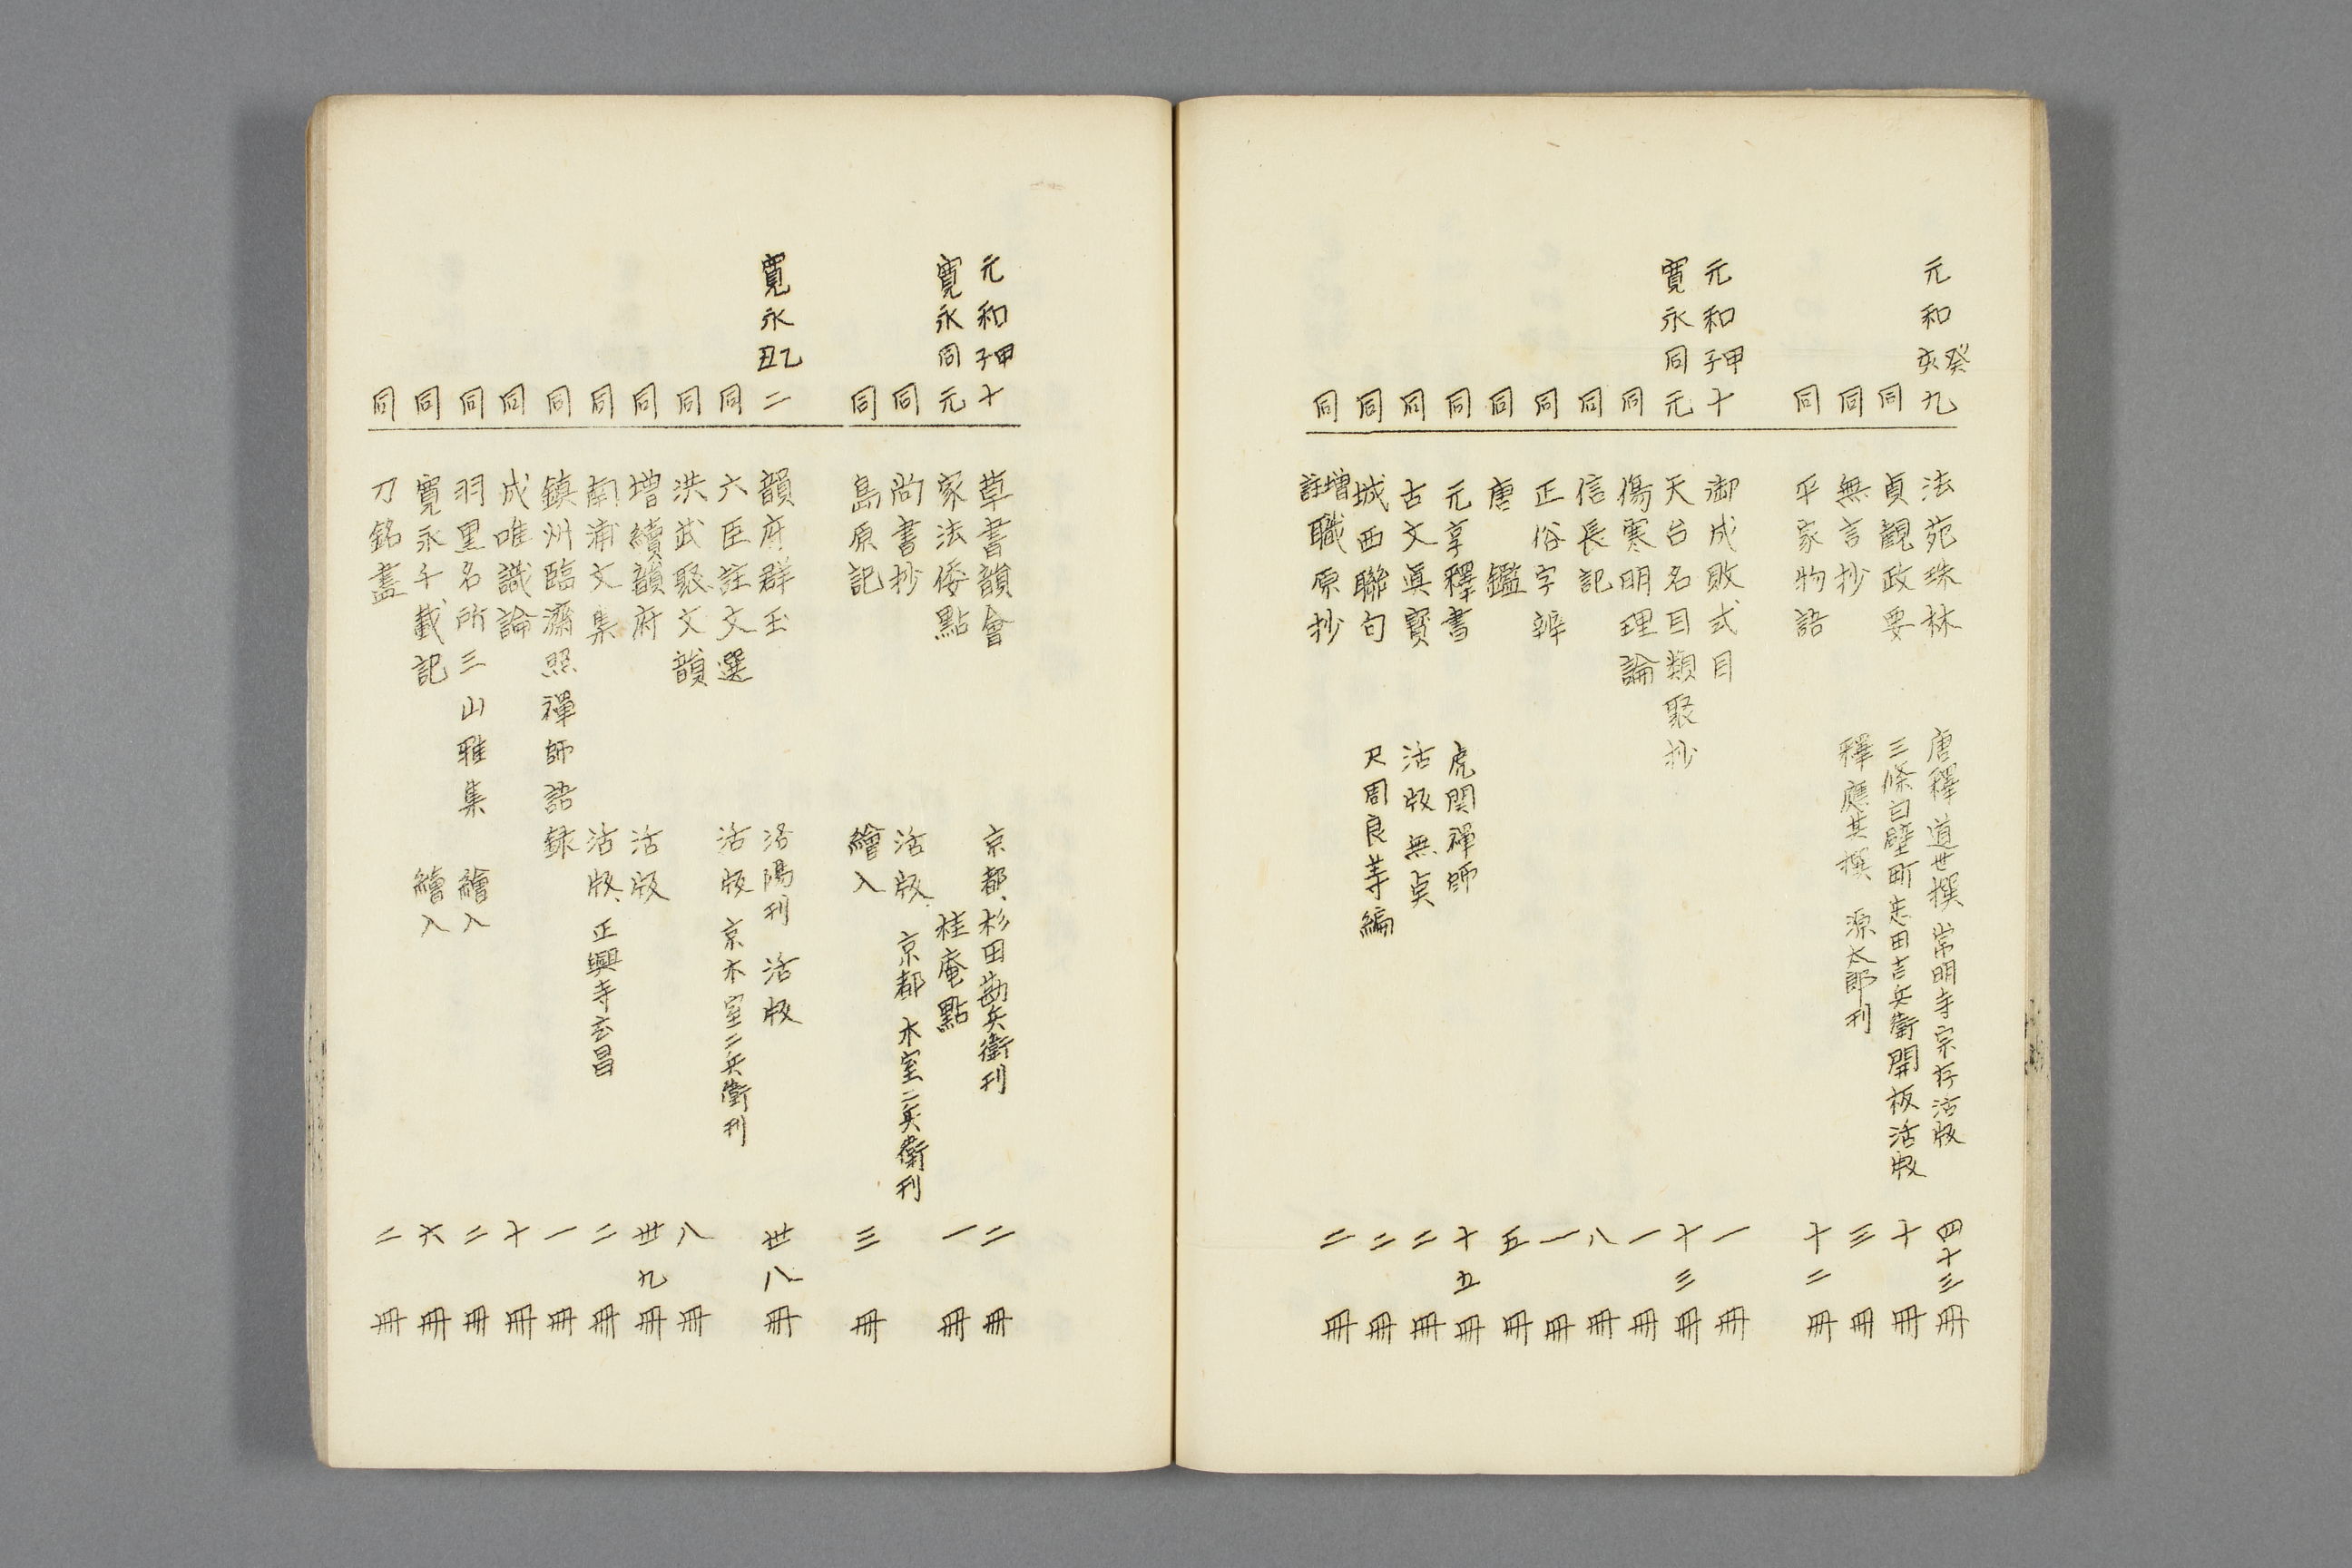 元和癸亥九 法苑珠林 唐釋道世撰 常明寺宗存活版 四十三冊
同 貞觀政要 三條白壁町 吉兵衛開板活版 十冊
同 無言抄 釋應其撰 源太郎刊 三冊
同 平家物語 十二冊
元和甲子十 御成敗式目 一冊
寛永同元 天台名目類聚抄 十三冊
同 傷寒明理論 一冊
同 信長記 八冊
同 正俗字辨 一冊
同 唐鑑 五冊
同 元享釋書 虎関禅師 十五冊
同 古文眞寳 活版無貞 二冊
同 城西聯句 尺周良等編 二冊
同 増註職原抄 二冊
元和甲子十 草書韻會 京都、杉田勘兵衛刊 二冊
寛永同元 家法倭點 桂庵點 一冊
同 尚書抄 活版、京都 木室二兵衛刊
同 島原記 繪入 三冊
寛永乙丑二 韻府群玉 洛陽刊 活版 卅八冊
同 六臣註文選 活版 京木室二兵衛刊
同 洪武聚文韻 八冊
同 増續韻府 活版 卅九冊
同 南浦文集 活版、正興寺玄昌 二冊
同 鎮州臨濟照禪師語録 一冊
同 成唯識論 十冊
同 羽黒名所三山雅集 繪入 二冊
同 寛永千載記 繪入 六冊
同 刀銘盡 二冊